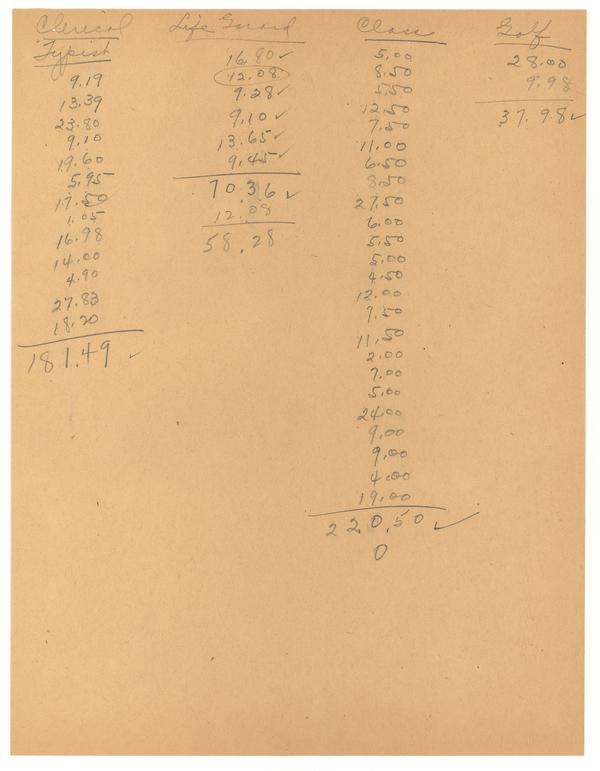 Clerical
Typist
9.19
13.39
23.80
9.10
19.60
5.95
17.50
1.05
16.98
14.00
4.90
27.83
18.20
181.49 ✓
Life Guard
16.80 ✓
12.08
9.28 ✓
9.10 ✓
13.65 ✓
9.45 ✓
70.36 ✓
12.08
58.28
Class
5.00
8.50
5.50
12.50
7.50
11.00
6.50
8.50
27.50
6.00
5.50
5.00
4.50
12.00
7.50
11.50
2.00
7.00
5.00
24.00
9.00
9.00
4.00
19.00
220.50 ✓
0
Golf
28.00
9.98
37.98 ✓